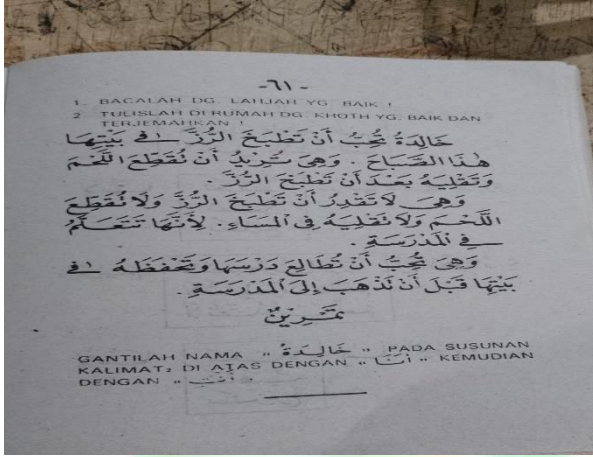 -٦١-
1. BACALAH DG. LAHJAH YG. BAIK !
2. TULISLAH DI RUMAH DG. KHOTH YG. BAIK DAN
TERJEMAHKAN !
خَالِدَةُ تُحِبُّ أَنْ تَطْبَخَ الرُّزَّ فِي بَيْتِهَا
هٰذَا الصَّبَاحَ . وَهِيَ تُرِيْدُ أَنْ تُقَطِّعَ اللَّحْمَ
وَتَقْلِيَهُ بَعْدَ أَنْ تَطْبَخَ الرُّزَّ .
وَهِيَ لَا تَقْدِرُ أَنْ تَطْبَخَ الرُّزَّ وَلَا تُقَطِّعَ
اللَّحْمَ وَلَا تَقْلِيَهُ فِي الْمَسَاءِ . لِأَنَّهَا تَتَعَلَّمُ
فِي الْمَدْرَسَةِ .
وَهِيَ تُحِبُّ أَنْ تُطَالِعَ دَرْسَهَا وَتَحْفَظَهُ فِي
بَيْتِهَا قَبْلَ أَنْ تَذْهَبَ إِلَى الْمَدْرَسَةِ .
تَمْرِيْنٌ
GANTILAH NAMA „ خَالِدَةُ " PADA SUSUNAN
KALIMAT₂ DI ATAS DENGAN „ أَنَا " KEMUDIAN
DENGAN „ أَنْتِ .